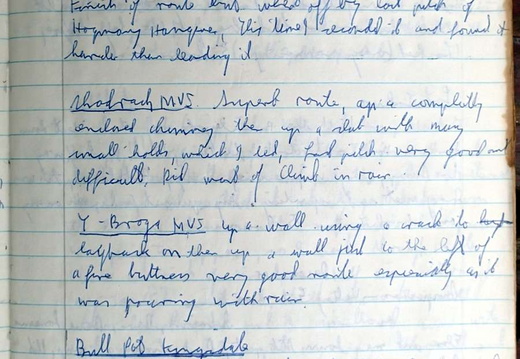 Finish of route but went off by last pitch of
Hogmany Hangover, This time I seconded it and found it
harder than leading it
Shadrach MVS. Superb route, up a completly
enclosed chimney then up a slab with many
small holds, which I led, last pitch very good and
difficult, Did most of climb in rain.
Y-Broga MVS up a wall using a crack to
layback on then up a wall just to the left of
a fine buttress very good route especially as it
was pouring with rain.
Bull Pot Kingsdale